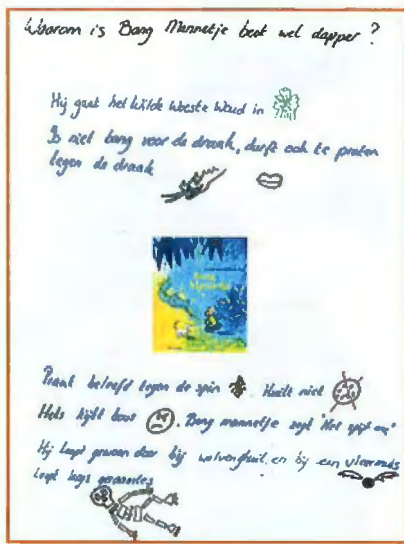 Waarom is Bang Mannetje best wel dapper?
Hij gaat het Wilde Woeste Woud in
Is niet bang voor de draak, durft ook te praten
tegen de draak
Bang
Mannetje
Praat beleefd tegen de spin. Huilt niet
Heks kijkt boos. Bang mannetje zegt "Het spijt me"
Hij loopt gewoon door bij wolvengehuil en bij een vleermuis
Loopt langs geraamtes